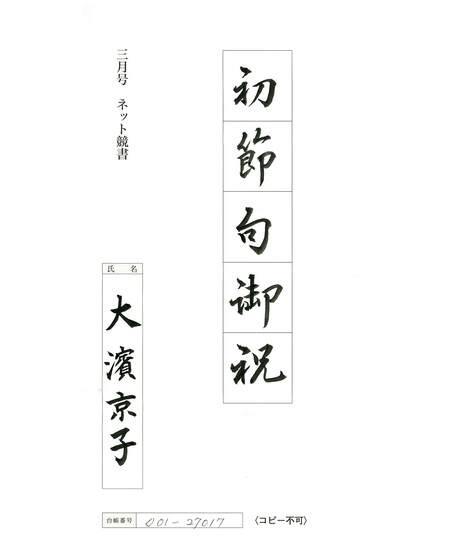 初節句御祝
三月号 ネット競書
氏名
大濱京子
台帳番号 001-27017
〈コピー不可〉